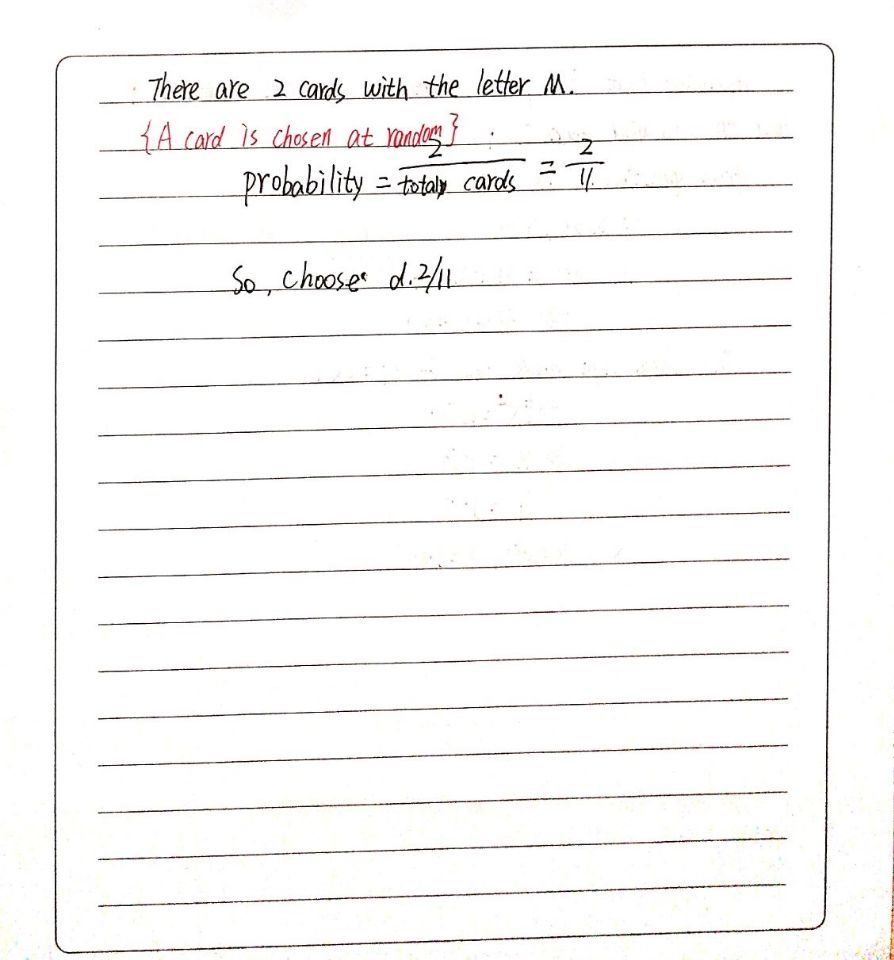 There are 2 cards with the letter M.
{A card is chosen at random}
probability = 2/total cards = 2/11
So, choose d.2/11